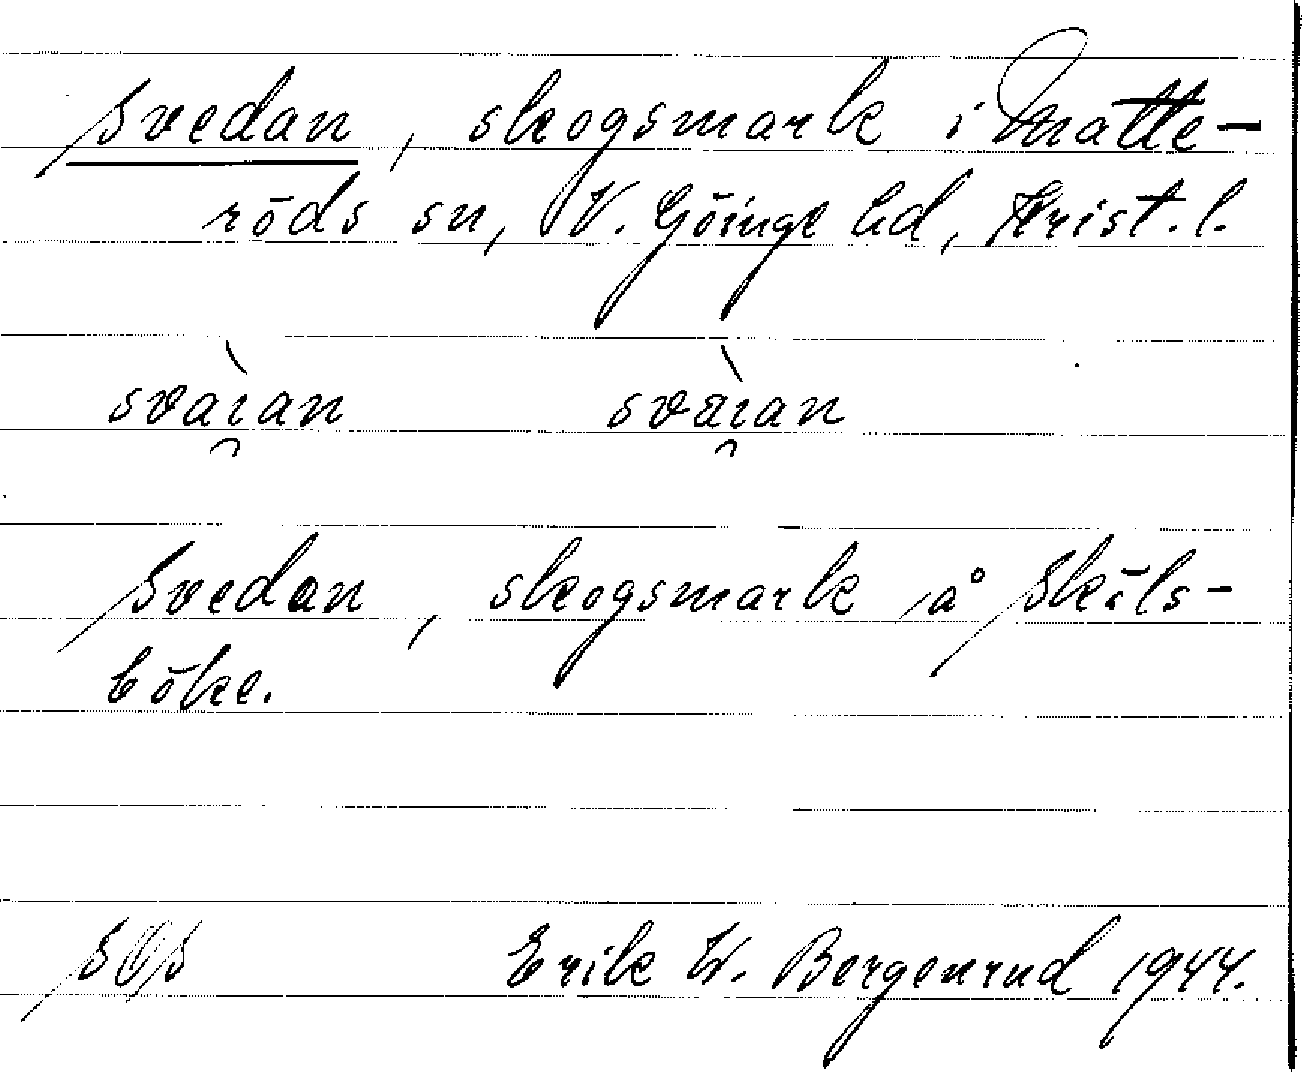 Svedan, skogsmark i Matte-
röds sn, V. Göinge hd, Krist. l.
svàı̯an svàı̯an
Svedan, skogsmark å Skäls-
böke.
Erik W. Bergenrud 1944.